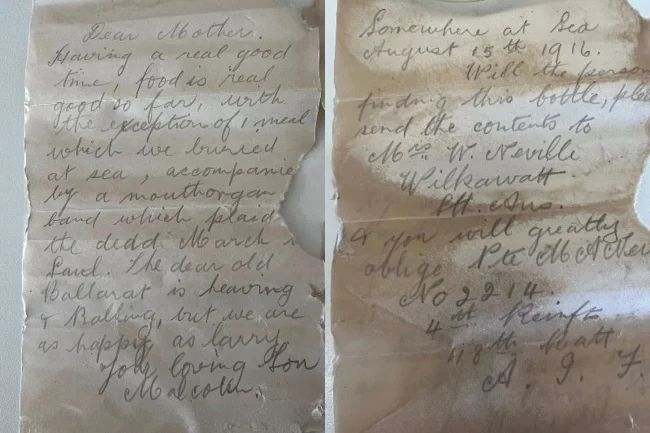 Dear Mother.
Having a real good
time, food is real
good so far, with
the exception of 1 meal
which we buried
at sea, accompanie
by a mouthorgan
band which plaid
the dedd March
Saul. The dear old
Ballarat is heaving
& Balling, but we are
as happy as larry.
Your loving Son
Malcolm.
Somewhere at Sea
August 15th 1916.
Will the person
finding this bottle, plea
send the contents to
Mrs. W. Neville
Wilkawatt
Sth. Aus.
& you will greatly
oblige Pte M A Nev
No 2214.
4th Reinfts
48th Batt
A. I. F.